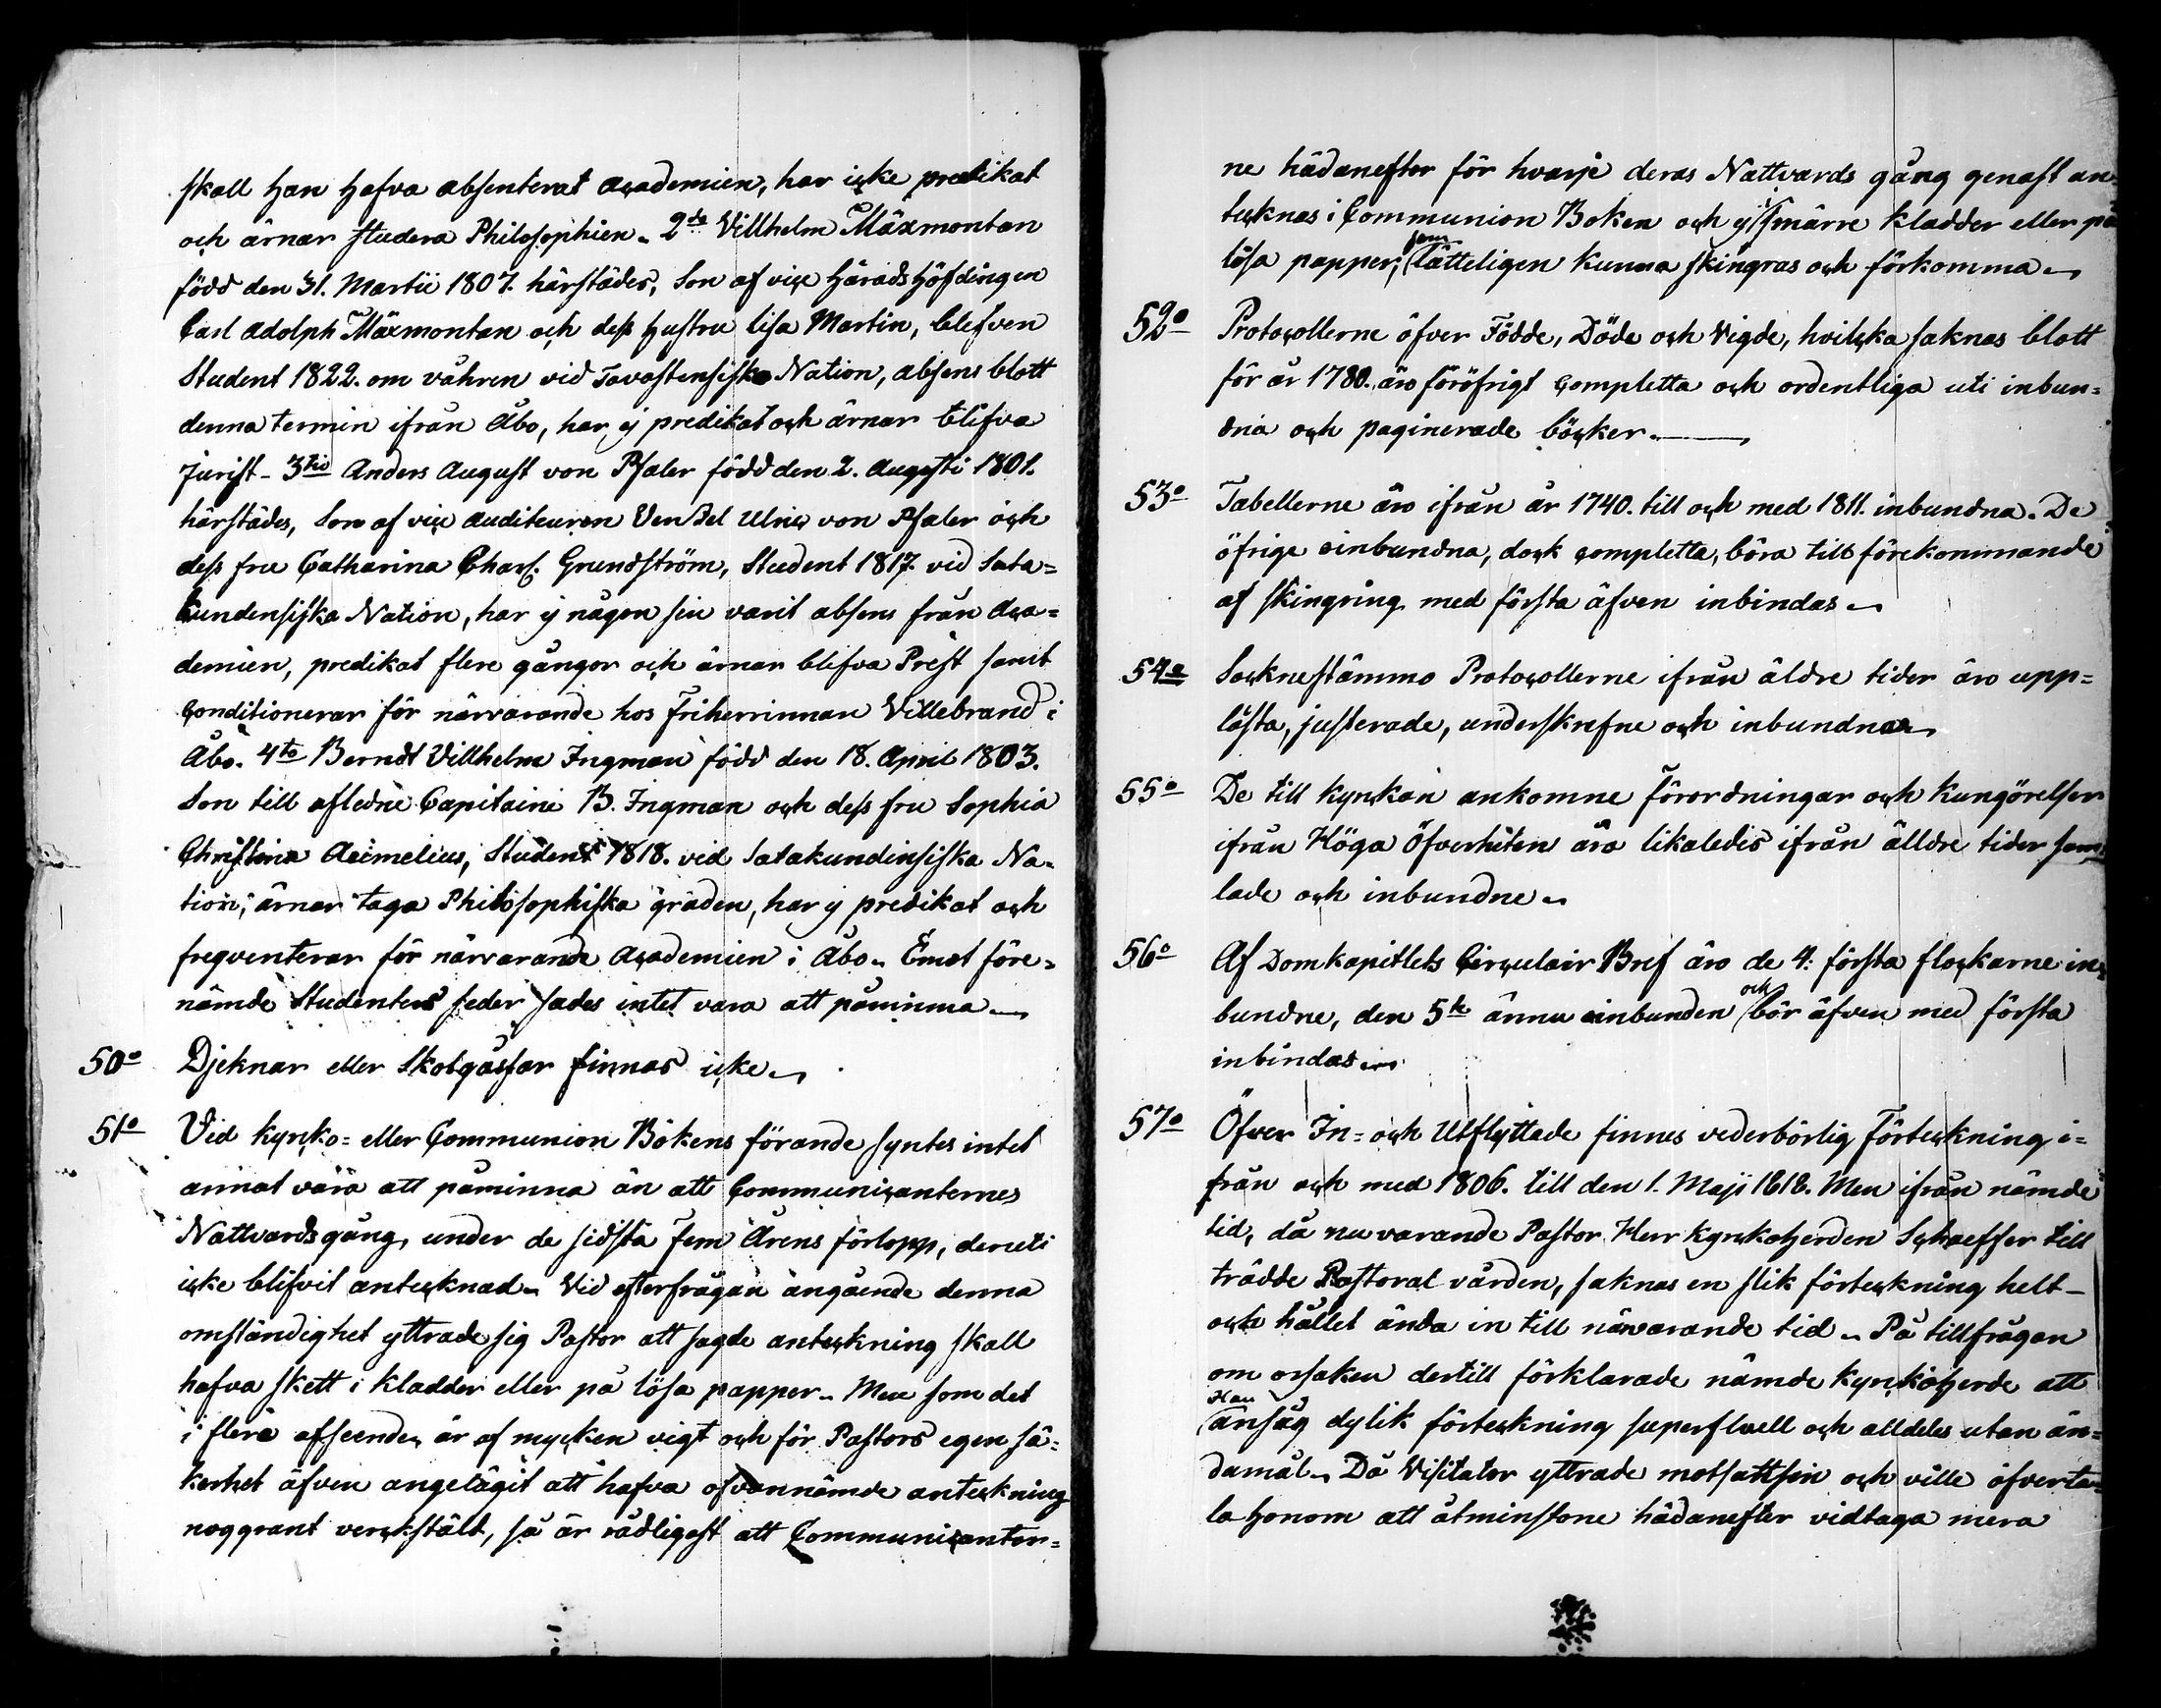 skall han hafva absenterat academien, har icke predikat
och ärnar studera Philosophien. 2do Villhelm Mäxmontan
född den 31. Martii 1807. härstädes, Son af vice Häradshöfdingen
Carl Adolph Mäxmontan och dess Hustru Lisa Martin, blefven
Student 1822. om våhren vid Tavastensiska Nation, absens blott
denna termin ifrån Åbo, har ej predikat och ärnar blifva
Jurist - 3tio Anders August von Pfaler född den 2. Augusti 1801.
härstädes, Son af vice Auditeuren Venzel Ulric von Pfaler och
dess fru Catharina Charl. Grundström, Student 1817. vid Sata=
kundensiska Nation, har ej någon sin varit absens från Aca=
demien, predikat flere gångor och ärnar blifva Prest samt
conditionerar för närvarande hos Friherrinnan Villebrand i
Åbo. 4to Berndt Villhelm Ingman född den 18. April 1803.
Son till afledne Capitaine B. Ingman och dess fru Sophia
Christina Aeimelius, Student 1818. vid Satakundinsiska Na=
tion, ärnar taga Philosophiska graden, har ej predikat och
freqventerar för närvarande Academien i Åbo. Emot före=
nämde Studenters seder sades intet vara att påminna.
50o Djeknar eller Skolgåssar finnas icke.
51o Vid Kyrko= eller Communion Bokens förande syntes intet
annat vara att påminna än att Communicanternes
Nattvardsgång, under de sidsta fem Årens förlopp, deruti
icke blifvit antecknad. Vid efterfrågan angående denna
omständighet yttrade sig Pastor att sagde anteckning skall
hafva skett i kladder eller på lösa papper. Men som det
i flere afseenden är af mycken vigt och för Pastors egen sä=
kerhet äfven angelägit att hafva ofvannämde anteckning
noggrant verckstäld, så är rådligast att Communicanter=
ne hädanefter för hvarje deras Nattvards gång genast an=
tecknas i Communion Boken och ej i smärre kladder eller på
lösa papper, som lätteligen kunna skingras och förkomma.
52o Protocollerne öfver Födde, Döde och Vigde, hvilcka saknas blott
för år 1780. äro föröfrigt completta och ordentliga uti inbun=
dna och paginerade böcker.
53o Tabellerne äro ifrån år 1740. till och med 1811. inbundna. De
öfrige oinbundna, dock completta, böra till förekommande
af skingring med första äfven inbindas.
54o Sockneståmmo Protocollerne ifrån äldre tider äro upp=
lästa, justerade, underskrefne och inbundna.
55o De till Kyrckan ankomne Förordningar och Kungörelser
ifrån Höga Öfverheten äro likaledes ifrån älldre tider sam=
lade och inbundne.
56o Af Domkapitlets Circulair Bref äro de 4. första flockarne in=
bundne, den 5te ännu oinbunden och bör äfven med första
inbindas.
57o Öfver In= och Utflyttade finnes vederbörlig Förteckning i=
från och med 1806. till den 1. Maji 1818. Men ifrån nämde
tid, då nuvarande Pastor Herr Kyrckoherden Schaeffer till
trädde Pastoral vården, saknas en slik förteckning helt-
och hållet ända in till närvarande tid. På tillfrågan
om orsaken dertill förklarade nämde Kyrckoherde att
Han ansåg dylik förteckning superfluell och alldeles utan än=
damål. Då Visitator yttrade motsattsen och ville öfverta=
la honom att åtminstone hädanefter vidtaga mera